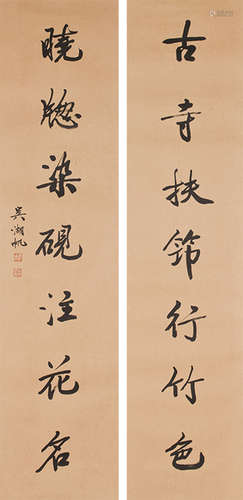 古寺扶筇行竹色
曉窗染硯注花名
吳湖帆